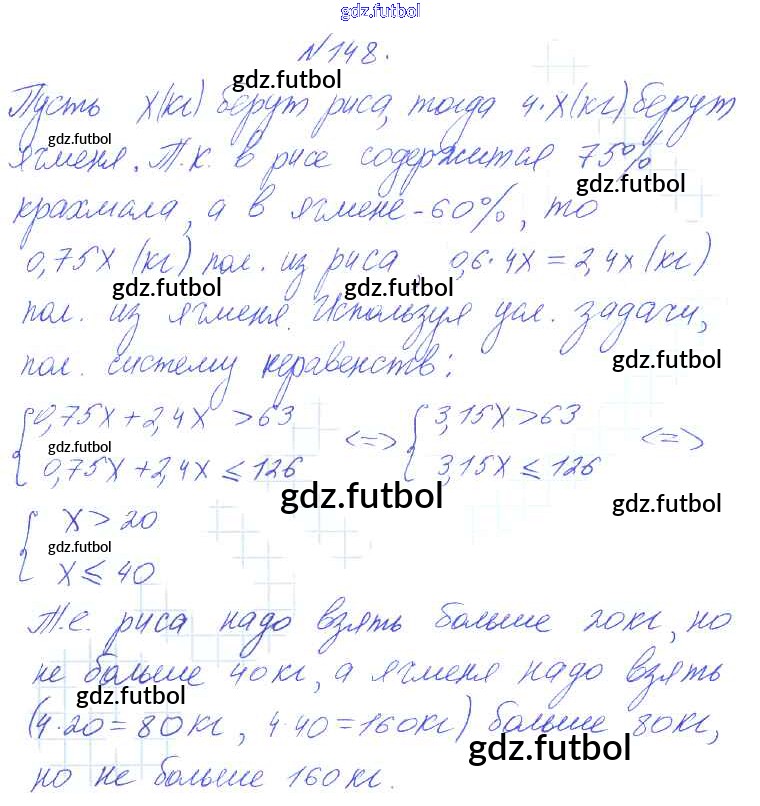 gdz.futbol
№148.
gdz.futbol
Пусть x(кг) берут риса, тогда 4·x(кг) берут
gdz.futbol
ячменя. Т.к. в рисе содержится 75%
gdz.futbol
крахмала, а в ячмене - 60%, то
0,75x (кг) пол. из риса, 0,6·4x = 2,4x (кг)
gdz.futbol gdz.futbol
пол. из ячменя. Используя усл. задачи,
пол. систему неравенств:
gdz.futbol
{0,75x + 2,4x > 63 <=> {3,15x > 63 <=>
gdz.futbol
0,75x + 2,4x ≤ 126 3,15x ≤ 126
gdz.futbol gdz.futbol
{x > 20
gdz.futbol
x ≤ 40
Т.е. риса надо взять больше 20кг, но
не больше 40кг, а ячменя надо взять
gdz.futbol
(4·20=80кг, 4·40=160кг) больше 80кг,
gdz.futbol
но не больше 160кг.